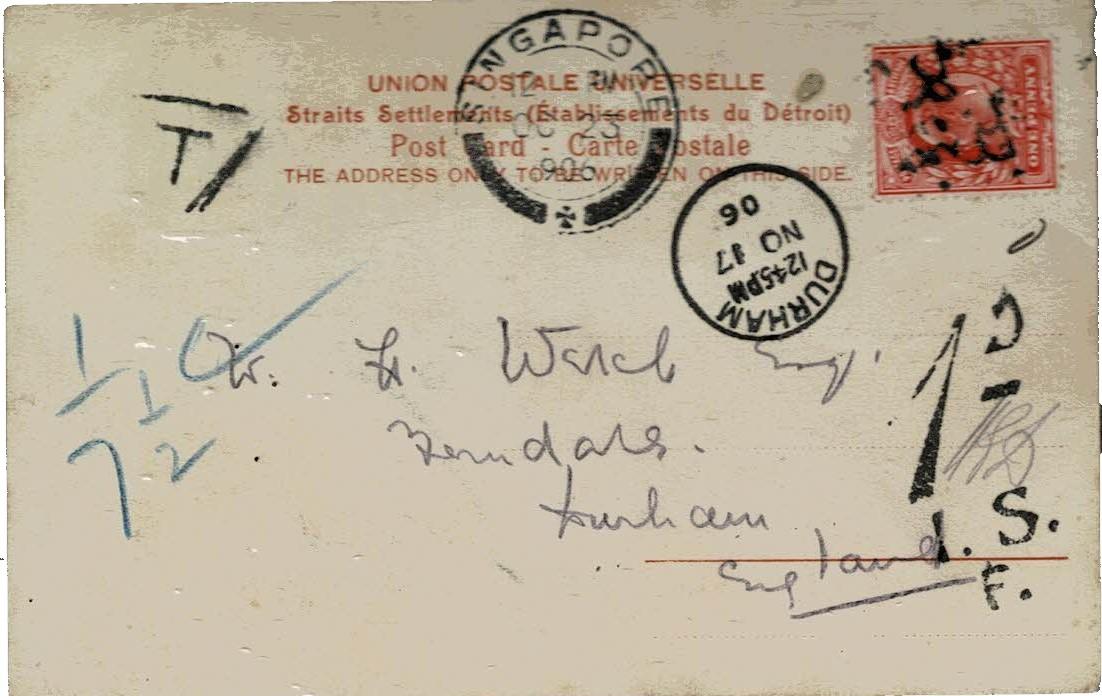 UNION POSTALE UNIVERSELLE
Straits Settlements (Établissements du Détroit)
Post Card - Carte Postale
THE ADDRESS ONLY TO BE WRITTEN ON THIS SIDE.
SINGAPORE
12 PM
OC 23
906
DURHAM
1245PM
NO 17
06
T/
W. H.
Esq.
Ferndale.
Durham
England
1
D
I. S.
F.